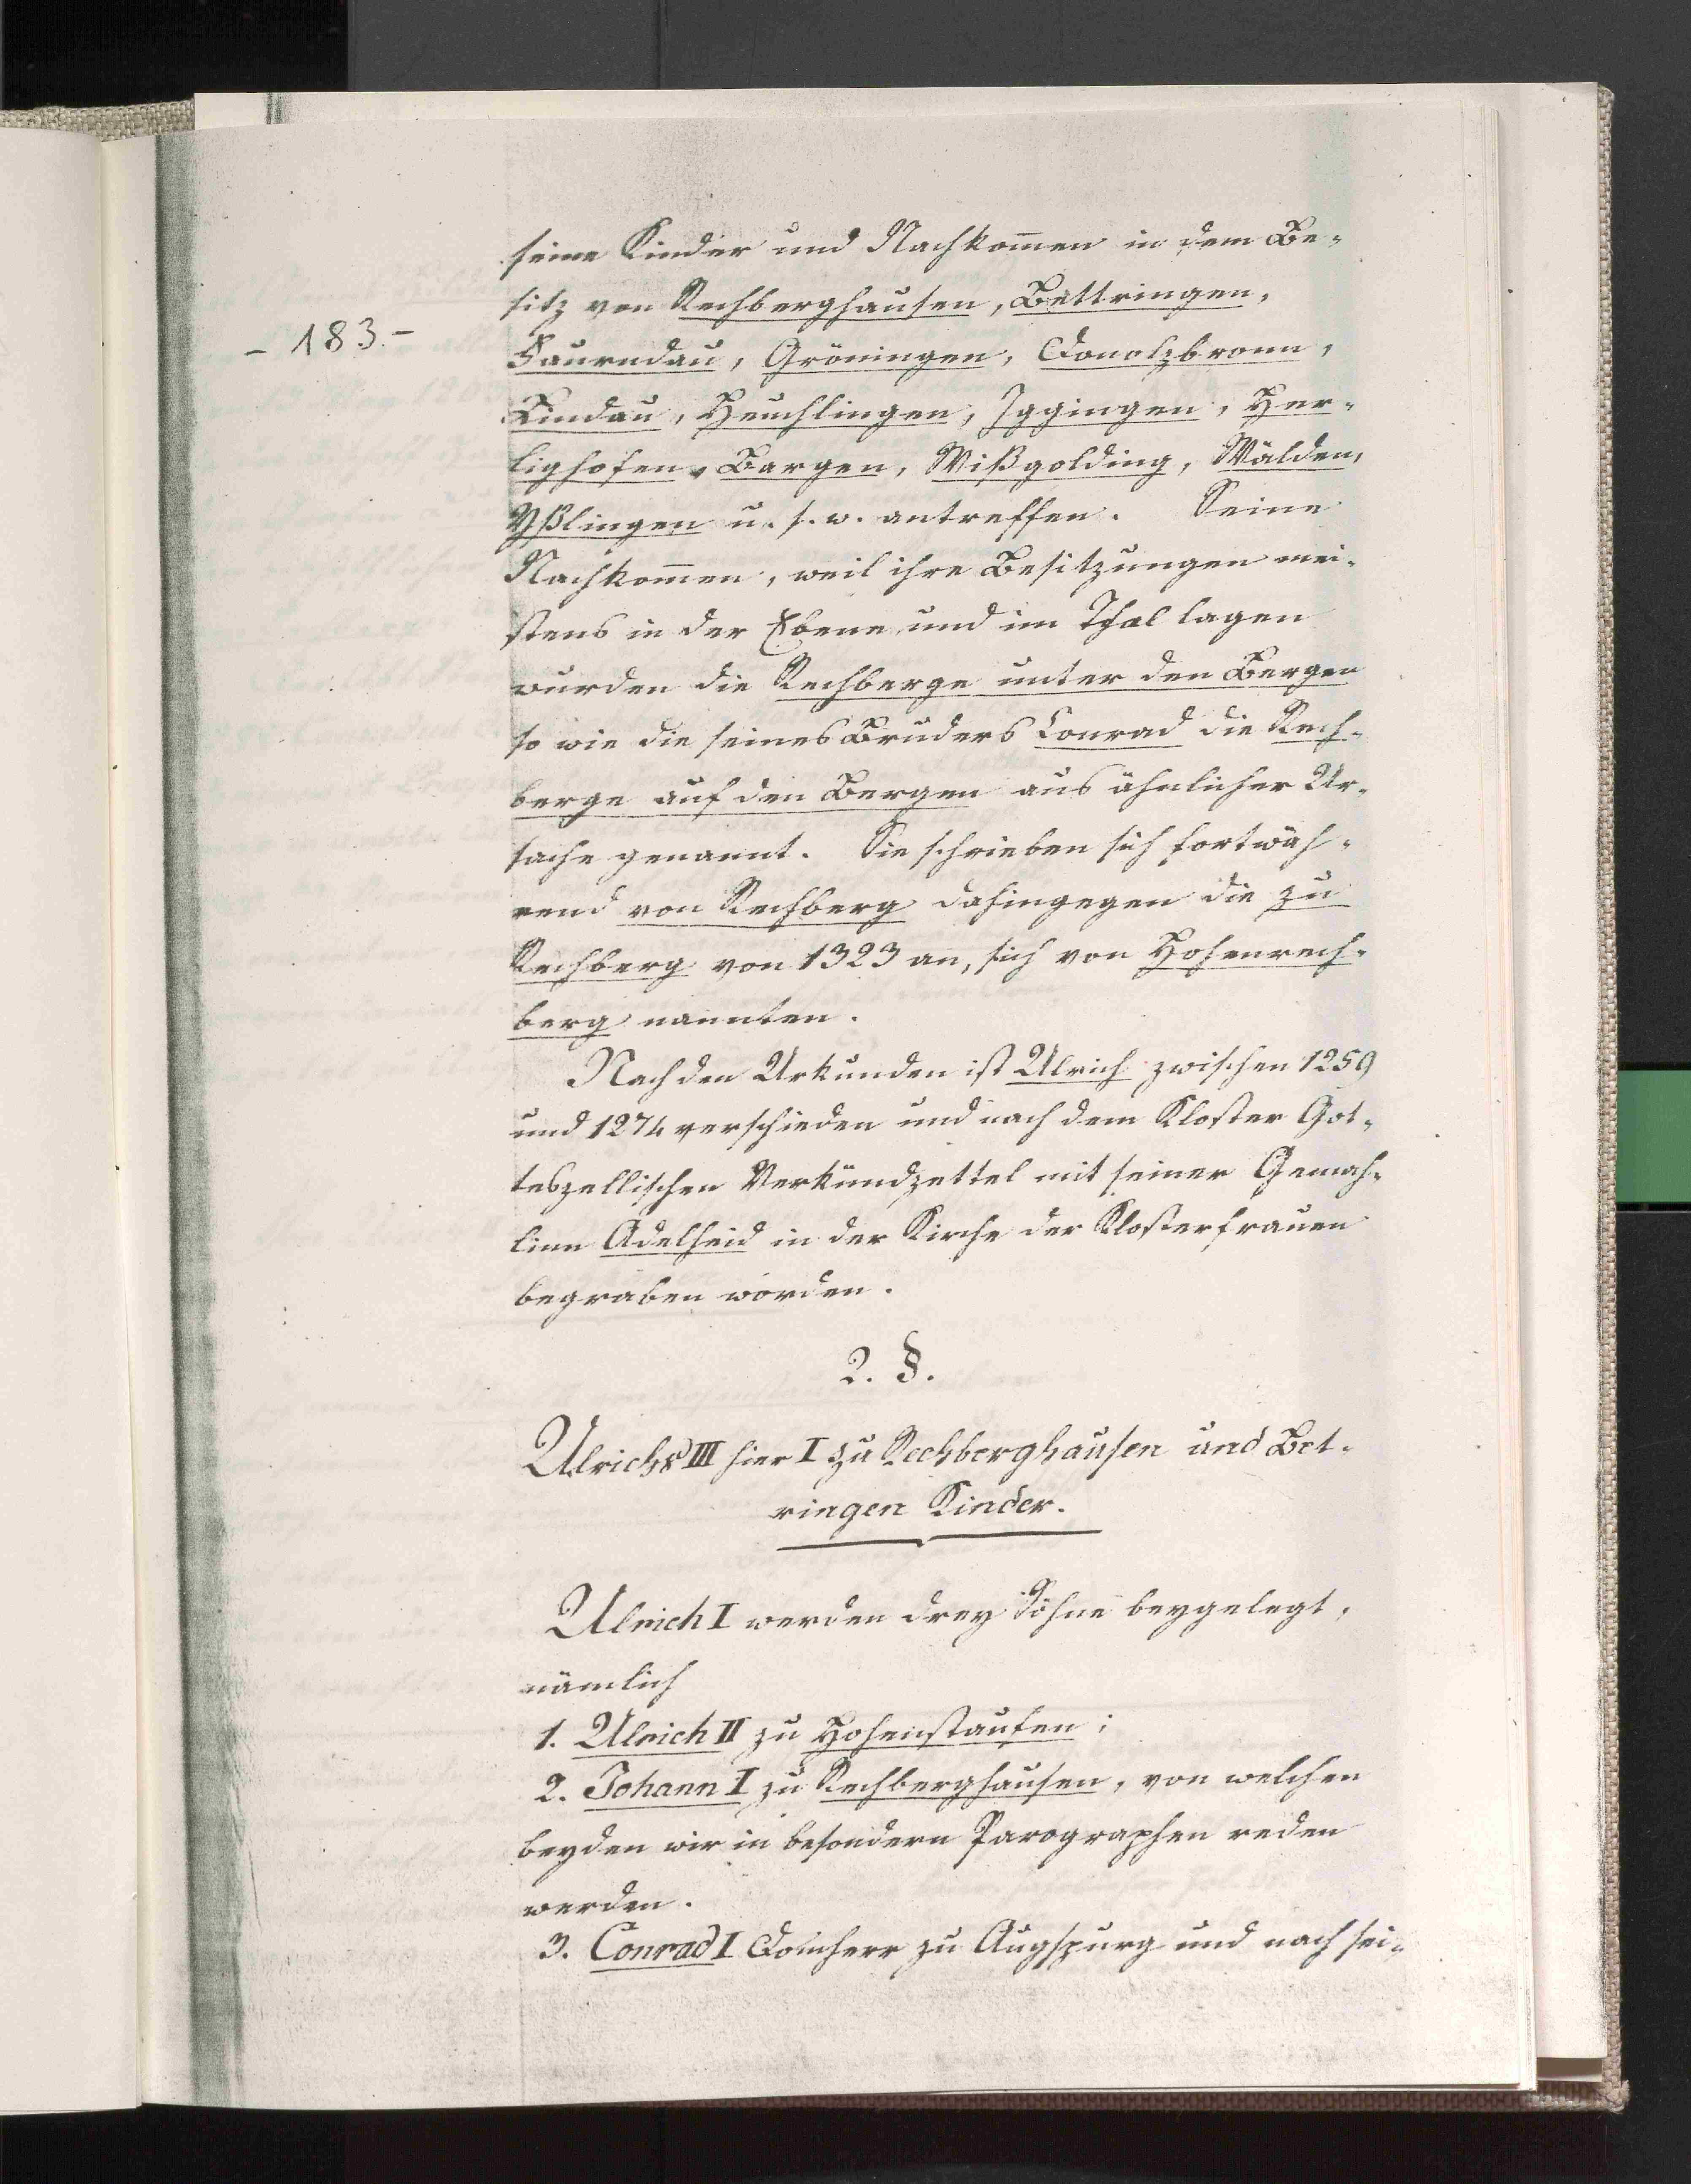 seine Kinder und Nachkom̄en in dem Be-
sitz von Rechberghausen, Bettringen,
- 183. -
Faurndau, Gröningen, Donolzbronn,
Lindau, Heuchlingen, Iggingen, Her-
lighofen, Bargen, Wißgolding, Wälden,
Yßlingen u. s. w. antreffen. Seine
Nachkom̄en, weil ihre Besitzungen mei-
stens in der Ebene und im Thal lagen
wurden die Rechberge unter den Bergen
so wie die seines Bruders Conrad die Rech-
berge auf den Bergen aus ähnlicher Ur-
sache genannt. Sie schrieben sich fortwäh-
rend von Rechberg dahingegen die zu
Rechberg von 1323 an, sich von Hohenrech-
berg nannten.
Nach den Urkunden ist Ulrich zwischen 1259
und 1274 verschieden und nach dem Kloster Got-
teszellischen Verkündzettel mit seiner Gemah-
linn Adelheid in der Kirche der Klosterfrauen
begraben worden.
2. §.
Ulrichs III hier I zu Rechberghausen und Bet-
ringen Kinder.
Ulrich I werden drey Söhne beygelegt,
nämlich
1. Ulrich II zu Hohenstaufen;
2. Johann I zu Rechberghausen, von welchen
beyden wir in besondern Parographen reden
werden.
3. Conrad I Domherr zu Augspurg und nach sei-